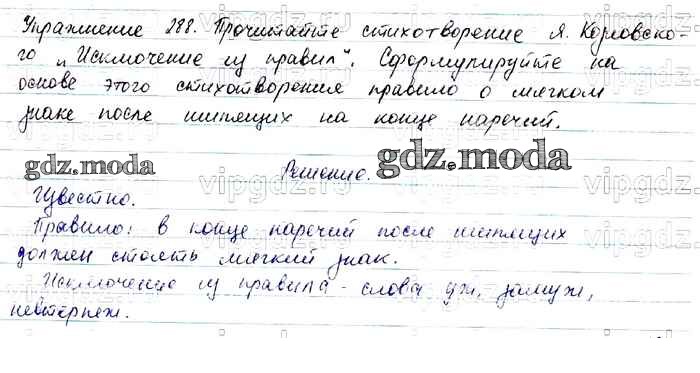 Упражнение 288. Прочитайте стихотворение Я. Козловско-
го „Исключение из правил". Сформулируйте на
основе этого стихотворения правило о мягком
знаке после шипящих на конце наречий.
gdz.moda
Решение.
gdz.moda
Известно.
Правило: в конце наречий после шипящих
должен стоять мягкий знак.
Исключение из правила - слова уж, замуж,
невтерпеж.
vipgdz.ru